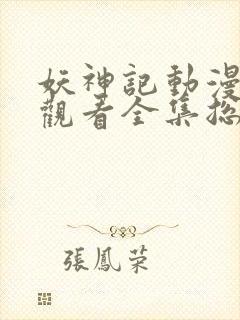 妖神記動漫
觀看全集
張鳳荣